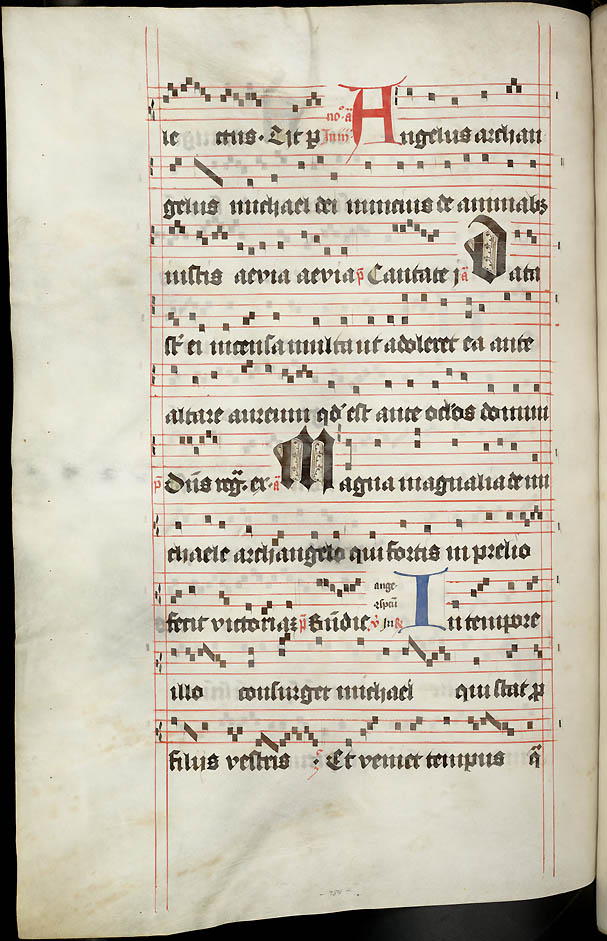 le ctus. Et p no. a Angelus archan
gelus michael dei nuncius de animabs
iustis aevia aevia p Cantate j a Data
st ei incensa multa ut adoleret ea ante
altare aureum qd est ante oclos domini
p Dns reg. ex. a Magna magnalia de mi
chaele archangelo qui fortis in prelio
fecit victoriaz p Bndic v In ange In tempore
illo consurget michael qui stat p
filijs vestris . Et veniet tempus q